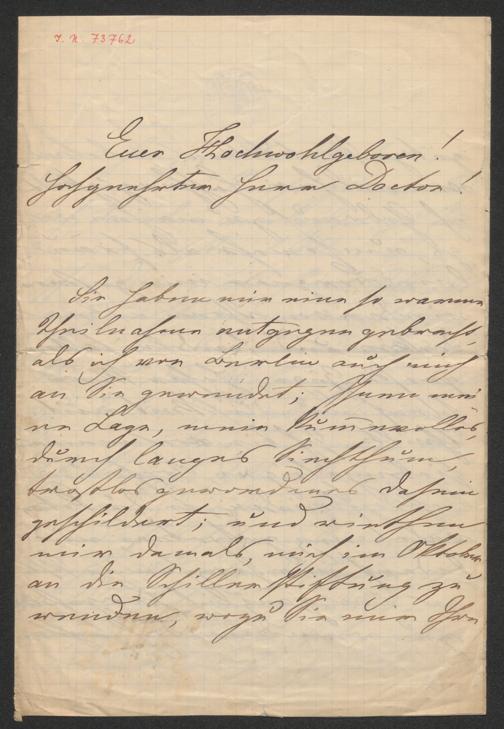 I. N. 73762
Euer Hochwohlgeboren!
Hochgeehrter Herr Doctor!
Sie haben mir eine so warme
Theilnahme entgegen gebracht,
als ich von Berlin auch mich
an Sie gewendet; Ihnen mei
ne Lage, mein kummervolles,
durch langes Siechthum,
trostlos gewordenes Dasein
geschildert; und riethen
mir damals, mich im Oktober
an die Schillerstiftung zu
wenden, wozu Sie mir Ihre